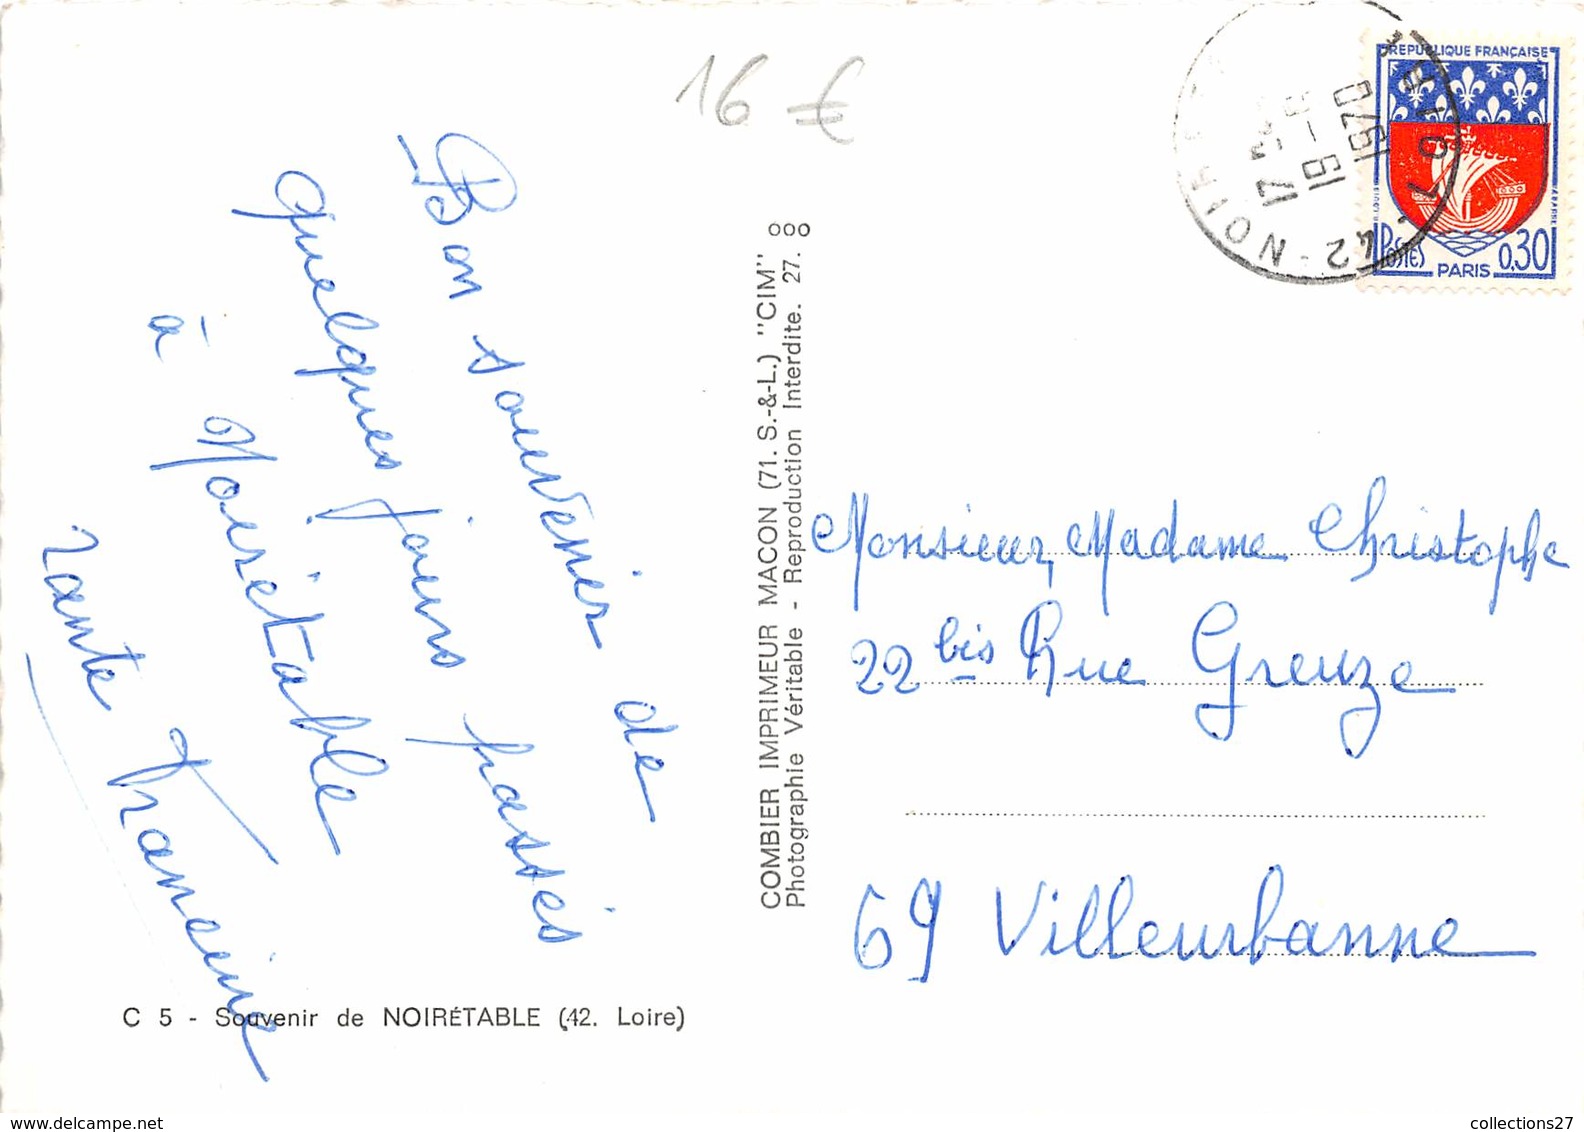 16 €
Bon souvenir de
quelques jours passés
à Noirétable
Tante Francine
C 5 - Souvenir de NOIRÉTABLE (42. Loire)
COMBIER IMPRIMEUR MACON (71. S.-&-L.) "CIM"
Photographie Véritable - Reproduction Interdite. 27. ooo
REPUBLIQUE FRANÇAISE
POSTES
PARIS
0,30
17 H
19 -
1970
42 - NOIR
Monsieur, Madame Christophe
22 bis Rue Greuze
69 Villeurbanne
collections27